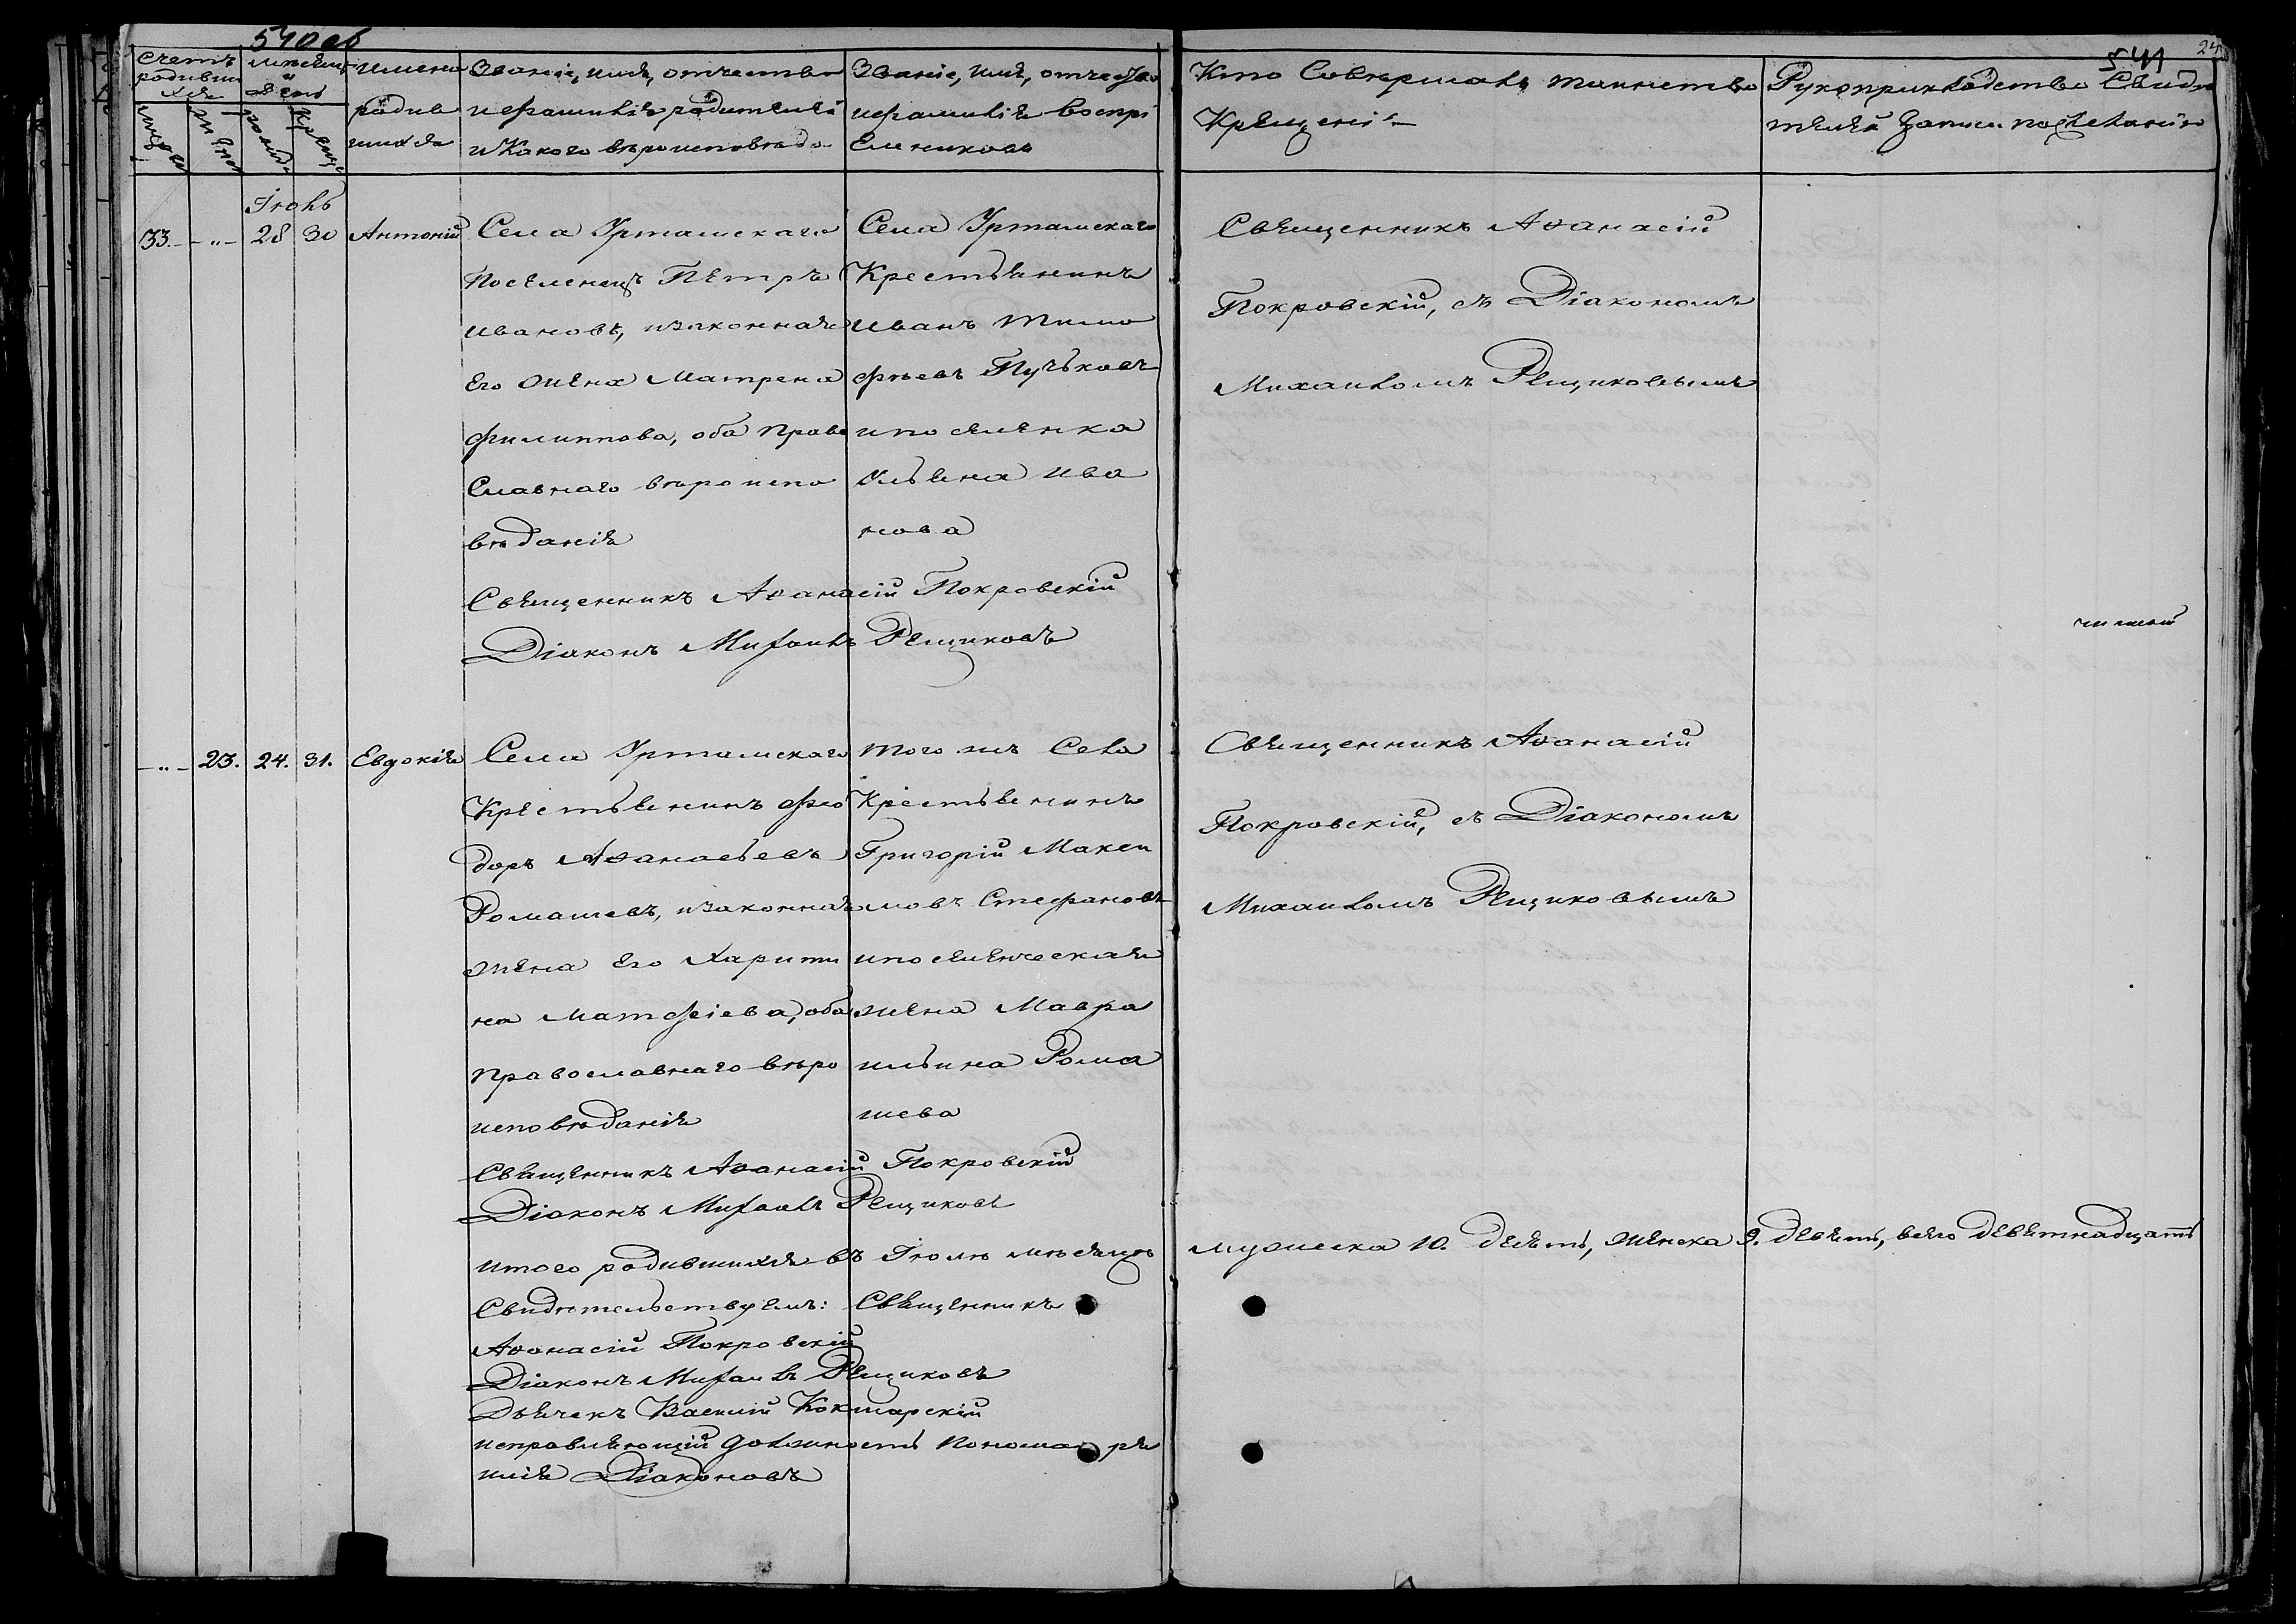 540 об
541
24
Счетъ родившихся
Мѣсяцъ и день
Имена родившихся
Званіе, имя, отчество и фамилія родителей и какого вѣроисповѣда
Званіе, имя, отчество и фамилія воспріемниковъ
Кто Совершалъ таинство Крещенія
Рукоприкладство Свидѣтелей записи по желанію
Іюль
33. - „ - 28 30 Антоній
Села Уртамскаго
поселенецъ Петръ
Ивановъ, и законная
его жена Матрена
Филиппова, оба Право
Славнаго вѣроиспо
вѣданія
Села Уртамскаго
Крестьянинъ
Иванъ Тимо
фѣевъ Пучьковъ
и поселенка
Ульяна Ива
нова
Священникъ Аѳанасій
Покровскій, съ Діакономъ
Михаиломъ Рещиковымъ
Священникъ Аѳанасій Покровскій
Діаконъ Михаилъ Рещиковъ
- „ - 23. 24. 31. Евдокія
Села Уртамскаго
Крестьянинъ Фео
доръ Аѳанасьевъ
Ромашевъ, и законная
жена его Харити
на Матфіева, оба
православнаго вѣро
исповѣданія
того же Села
Крестьянинъ
Григорій Макси
мовъ Стефановъ
и поселенческая
жена Мавра
Ильина Рома
шева
Священникъ Аѳанасій
Покровскій, съ Діакономъ
Михаиломъ Рещиковымъ
Священникъ Аѳанасій Покровскій
Діаконъ Михаилъ Рещиковъ
Итого родившихся въ Іюлѣ мѣсяцѣ мужеска 10. десять, женска 9. девять, всего девятнадцать
Свидѣтельствуемъ: Священникъ
Аѳанасій Покровскій
Діаконъ Михаилъ Рещиковъ
Дьячекъ Василій Кокшарскій
исправляющій должность пономаря
Илія Діаконовъ